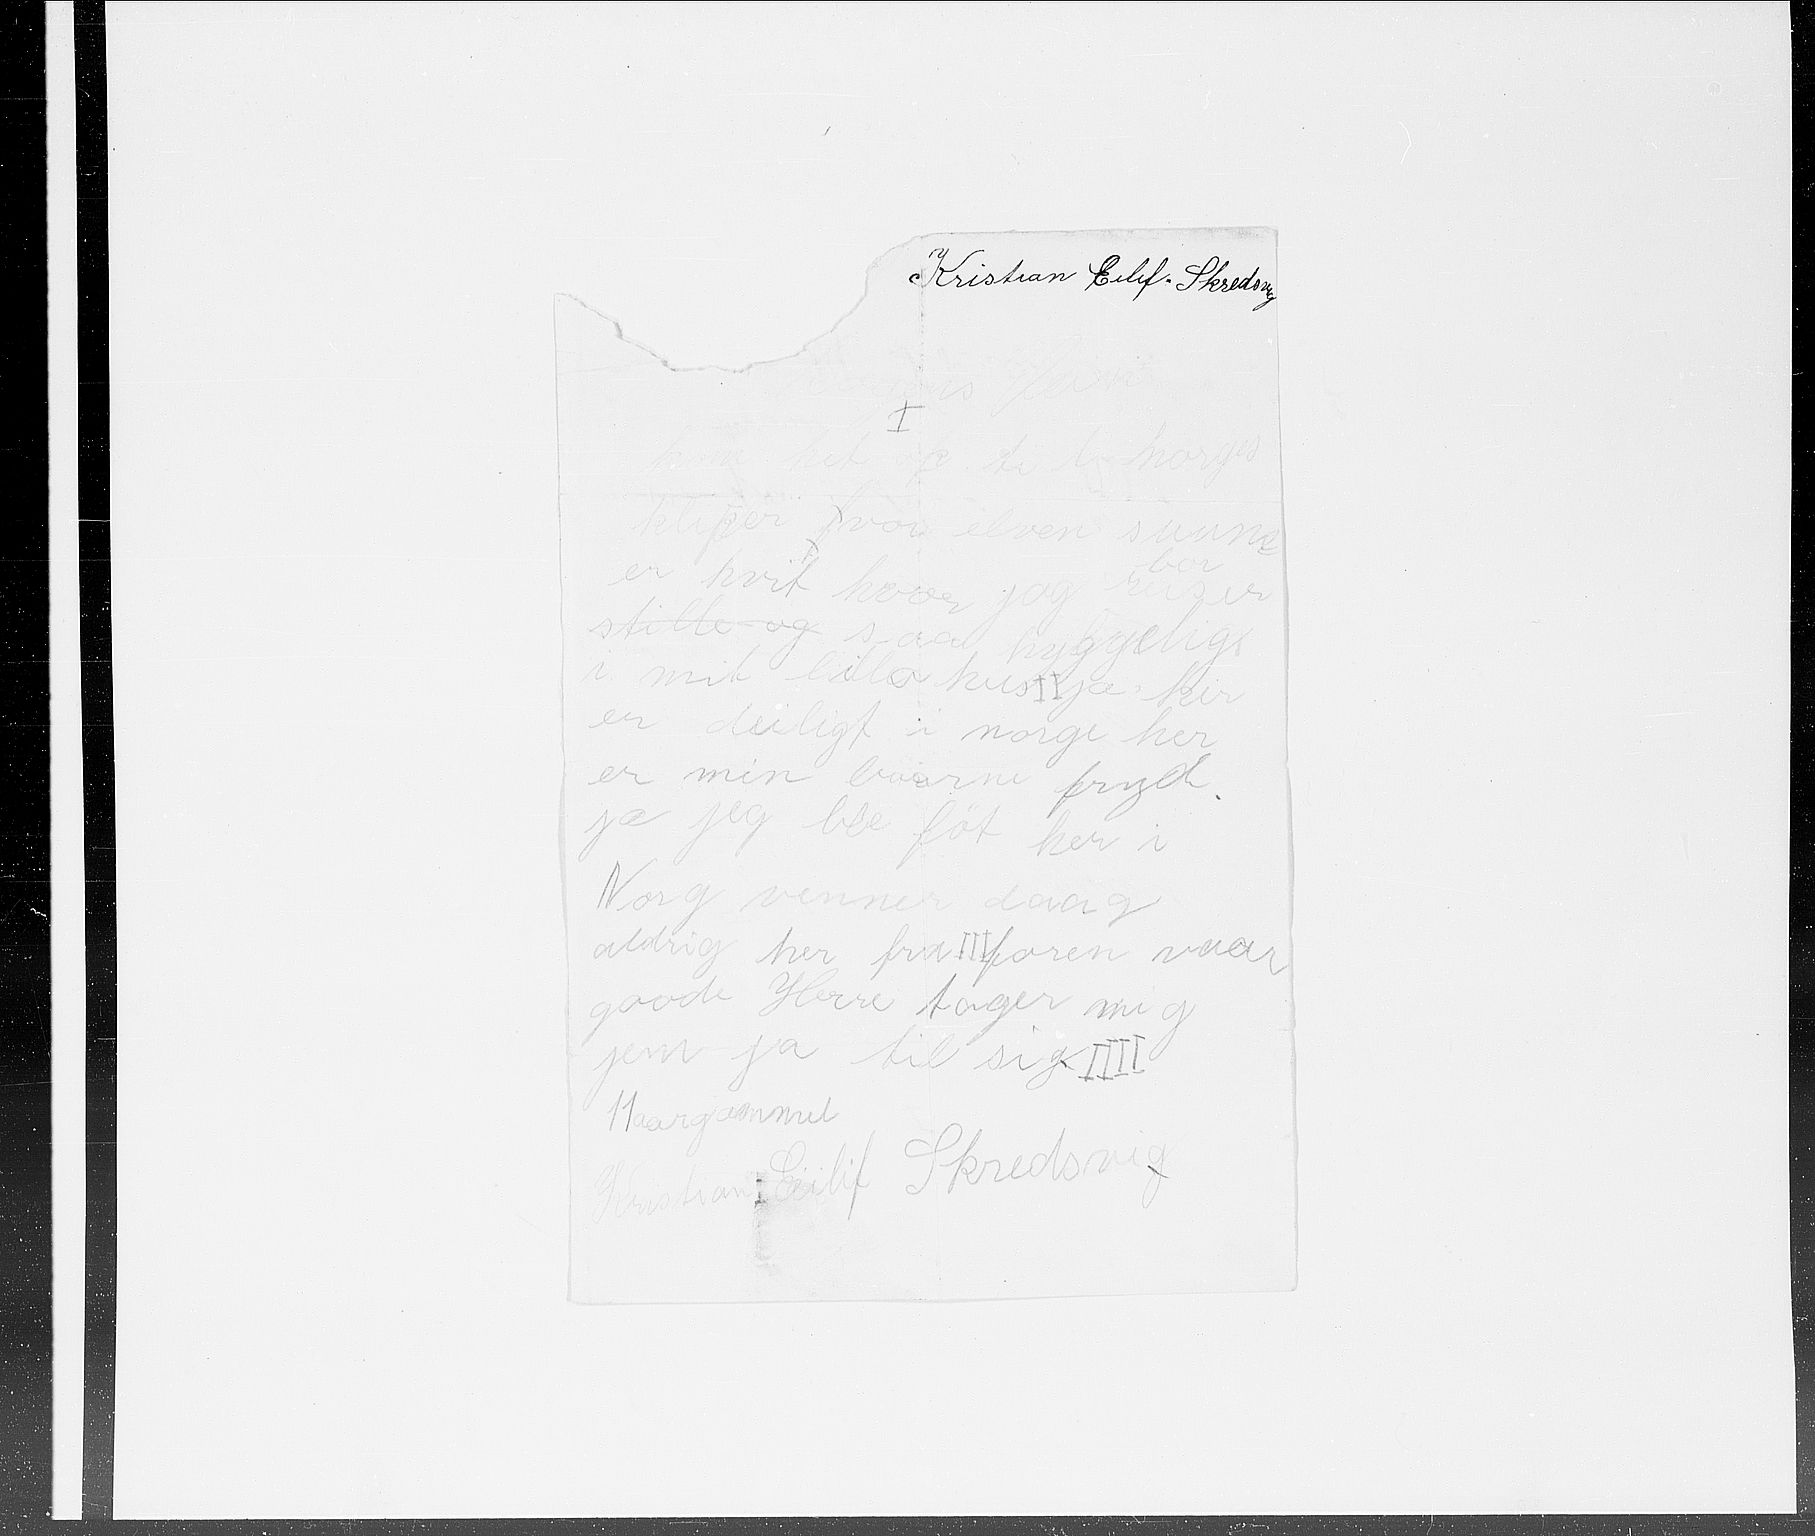 Kristian Eilif. Skredsvig
I
her op til norges
kliper hvor elven suune
er hvit hvor jag bor reiser
stille og saa hyggeligt
i mit lille hus II ja her
er deiligt i norge her
er min baarne fryd.
ja jeg ble föt her i
Norg venner daag
aldrig her fra III foren vaar
goode Herre tager mig
jem ja til sig IIII
11 aargammel
Kristian Eilif Skredsvig